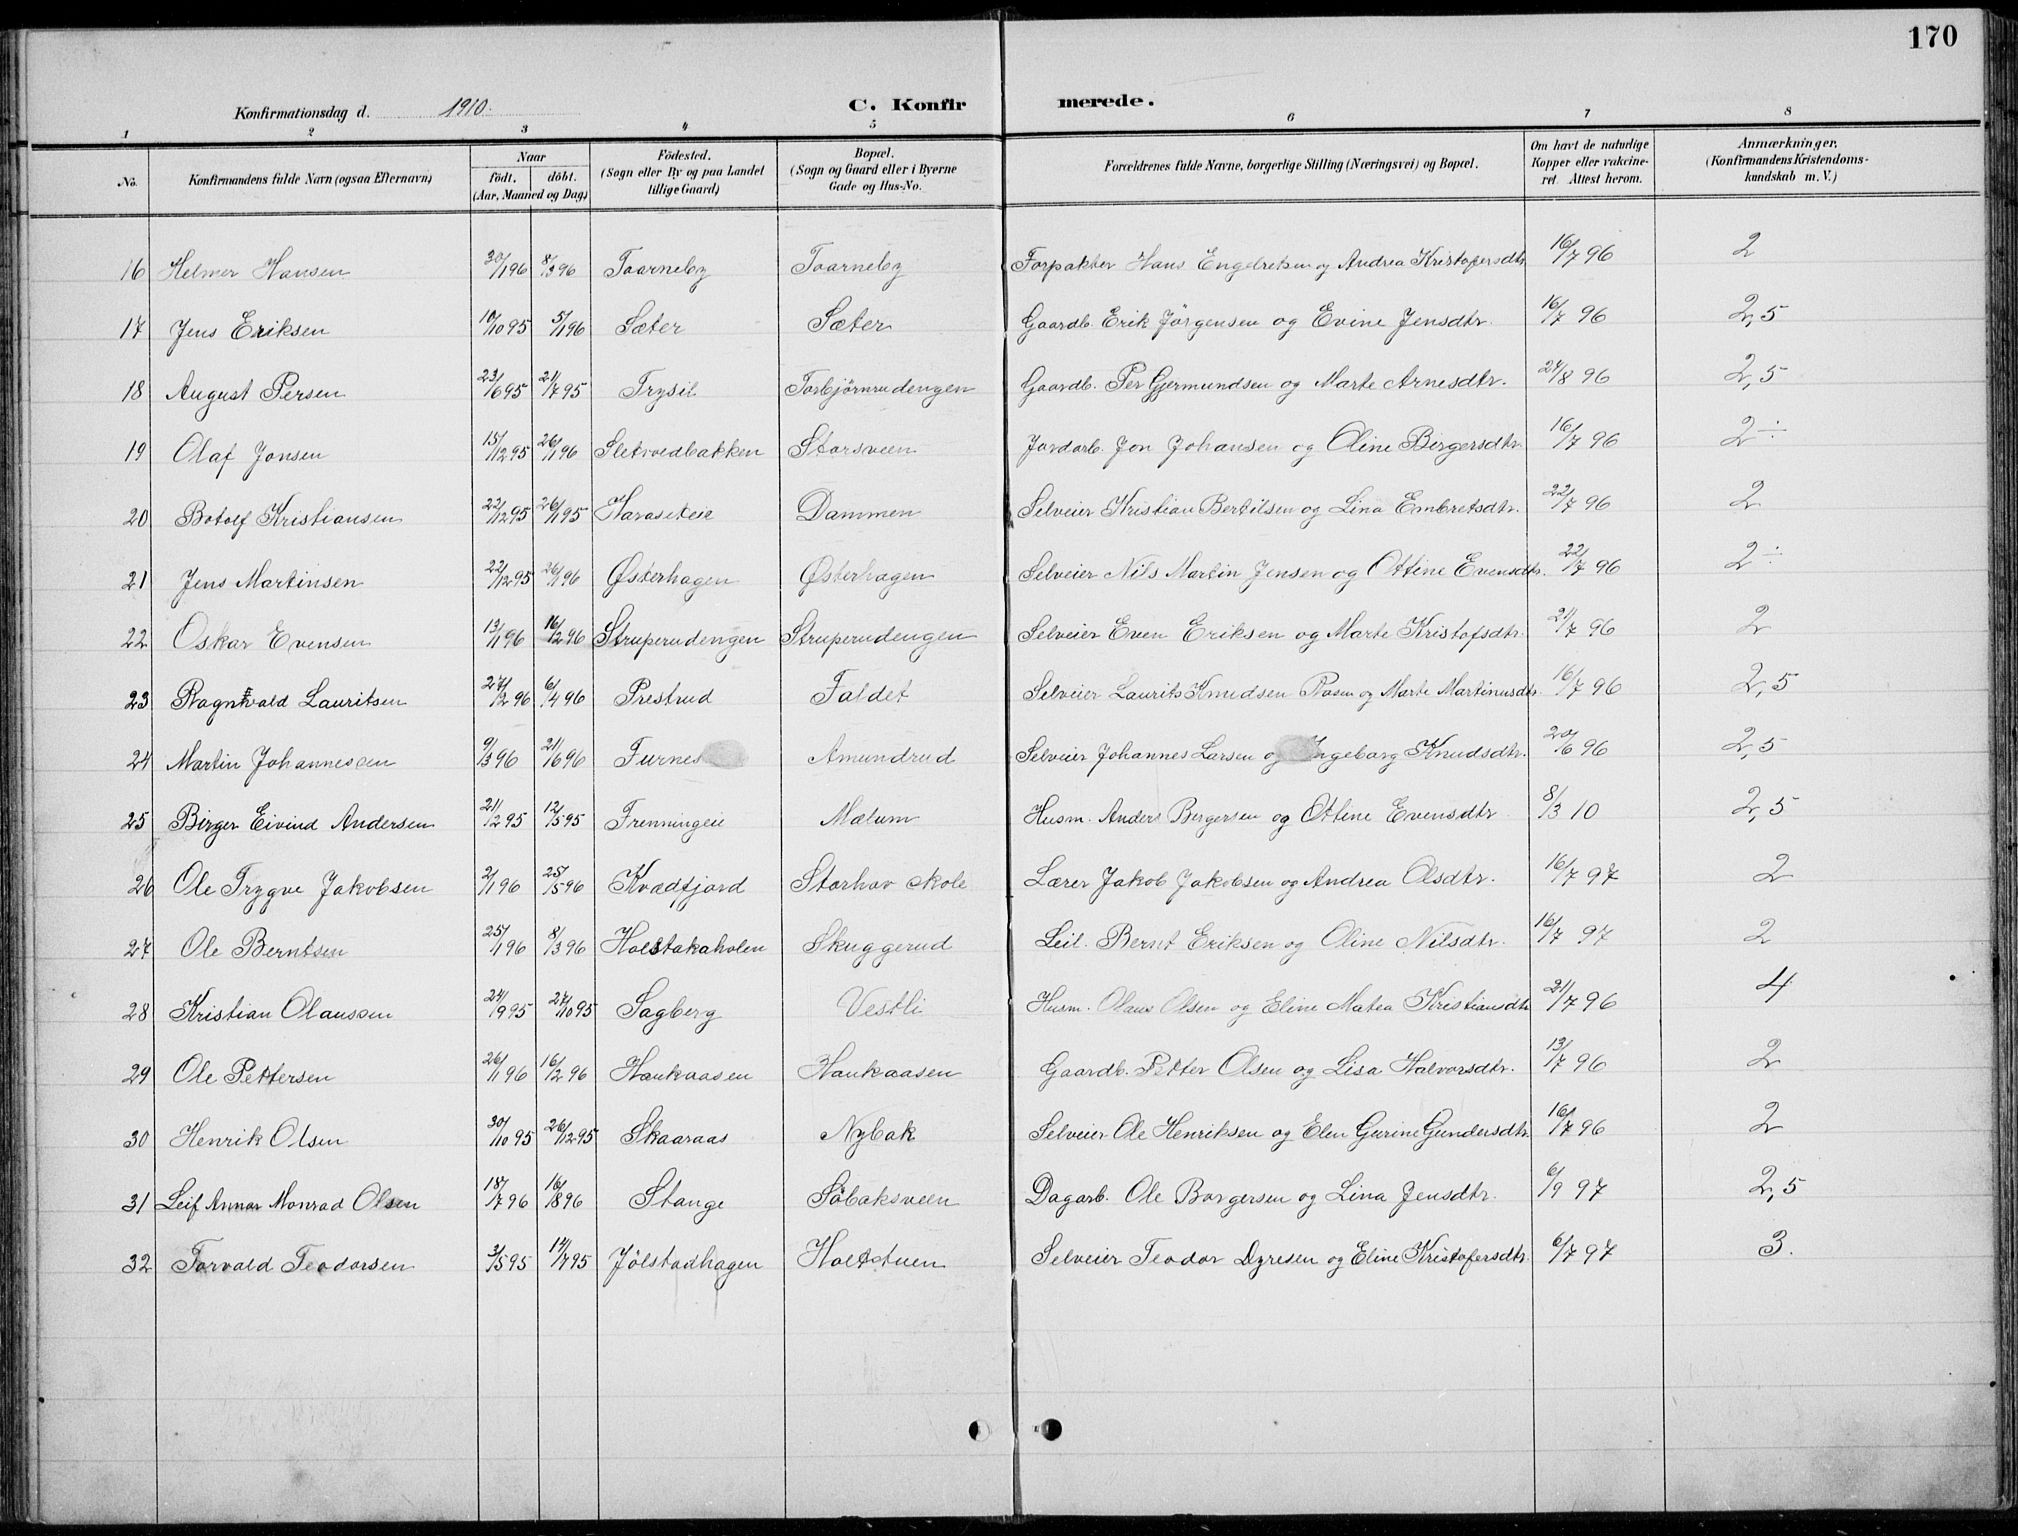 170
Konfirmationsdag d. 1910. C. Konfirmerede.
1 2 3 4 5 6 7 8
No. Konfirmandens fulde Navn (ogsaa Efternavn) Naar født. døbt. (Aar, Maaned og Dag) Fødested. (Sogn eller By og paa Landet tillige Gaard) Bopæl. (Sogn og Gaard eller i Byerne Gade og Hus-No. Forældrenes fulde Navne, borgerlige Stilling (Næringsvei) og Bopæl. Om havt de naturlige Kopper eller vakcineret. Attest herom. Anmærkninger. (Konfirmandens Kristendomskundskab m. V.)
16 Helmer Hansen 30/1 96 8/3 96 Taarneby Taarneby Forpakter Hans Engelretsen og Andrea Kristofersdtr. 16/7 96 2
17 Jens Eriksen 10/10 95 5/1 96 Sæter Sæter Gaardb. Erik Jørgensen og Evine Jensdtr. 16/7 96 2,5
18 August Persen 23/6 95 21/7 95 Trysil Torbjørnrudengen Gaardb. Per Gjermundsen og Marte Arnesdtr. 24/8 96 2,5
19 Olaf Jonsen 15/12 95 26/1 96 Sletvedbakken Storsveen Jordarb. Jon Johansen og Oline Birgersdtr. 16/7 96 2÷
20 Botolf Kristiansen 22/12 95 26/1 95 Haraseteie Dammen Selveier Kristian Bertilsen og Lina Embretsdtr. 22/7 96 2
21 Jens Martinsen 22/12 95 26/1 96 Østerhagen Østerhagen Selveier Nils Martin Jensen og Ottine Evensdtr. 22/7 96 2÷
22 Oskar Evensen 13/1 96 16/2 96 Struperudengen Struperudengen Selveier Even Eriksen og Marte Kristofsdtr. 21/7 96 2
23 Ragnvald Lauritsen 27/2 96 6/4 96 Prestrud Faldet Selveier Laurits Knudsen Rosen og Marte Martinusdtr. 16/7 96 2,5
24 Martin Johannesen 9/3 96 21/6 96 Furnes Amundrud Selveier Johannes Larsen og Ingeborg Knudsdtr. 20/6 96 2,5
25 Birger Eivind Andersen 21/2 95 12/5 95 Frenningeie Mælum Husm. Anders Bergersen og Ottine Evensdtr. 8/3 10 2,5
26 Ole Trygve Jakobsen 2/1 96 25/5 96 Kvædfjord Storhov skole Lærer Jakob Jakobsen og Andrea Olsdtr. 16/7 97 2
27 Ole Berntsen 25/1 96 8/3 96 Holstakaholen Skuggerud Leil. Bernt Eriksen og Oline Nilsdtr. 16/7 97 2
28 Kristian Olaussen 24/9 95 27/10 95 Sagberg Vestli Husm. Olaus Olsen og Eline Matea Kristiansdtr 21/7 96 4
29 Ole Pettersen 26/1 96 16/2 96 Haukaasen Haukaasen Gaardb. Petter Olsen og Lisa Halvorsdtr. 13/7 96 2
30 Henrik Olsen 30/10 95 26/12 95 Skaaraas Nybak Selveier Ole Henriksen og Elen Gurine Gundersdtr. 16/7 96 2
31 Leif Annar Monrad Olsen 18/7 96 16/8 96 Stange Søbaksveen Dagarb. Ole Borgersen og Lina Jensdtr. 6/9 97 2,5
32 Torvald Teodorsen 3/5 95 14/7 95 Jølstadhagen Holtstuen Selveier Teodor Dyresen og Eline Kristofersdtr. 6/7 97 3.